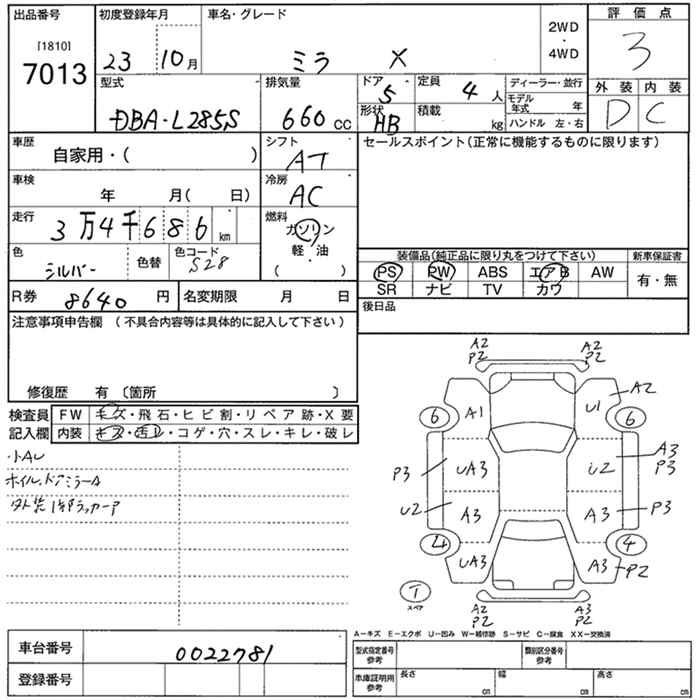 出品番号 初度登録年月 車名・グレード 2WD ・ 4WD 評価点
[1810] 7013 23 10月 ミラ X 3
外装 内装
D C
型式 排気量 ドア 定員 ディーラー・並行
DBA-L285S 660 CC 5 4 人 モデル年式 年
形状 積載 kg ハンドル 左・右
HB
車歴 シフト セールスポイント(正常に機能するものに限ります)
自家用・( ) AT
車検 冷房
年 月( 日) AC
走行 燃料
3万4千686 km ガソリン
軽・油
( )
色 色替 色コード
シルバー S28
装備品(純品に限り丸をつけて下さい) 新車保証書
PS PW ABS エアB AW 有・無
SR ナビ TV カワ
R券 8640 円 名変期限 月 日 後日品
注意事項申告欄 (不具合内容等は具体的に記入して下さい)
修復歴 有 〔箇所 〕
検査員 FW キズ・飛石・ヒビ割・リペア跡・X要
記入欄 内装 キズ・汚レ・コゲ・穴・スレ・キレ・破レ
小AU
ホイル、ドアミラーA
A2 P2 A2 P2
A1 U1 A2
6 6
P3 UA3 U2 A3 P3
U2 A3 A3 P3
4 4
UA3 A3 P2
T スペア
A2 P2 A3 P2
A-キズ E-エクボ U-凹み W-補修跡 S-サビ C-腐食 XX-交換済
車台番号 0022781
登録番号
型式指定番号 参考 類別区分番号 参考
車庫証明用 参考 長さ cm 幅 cm 高さ cm